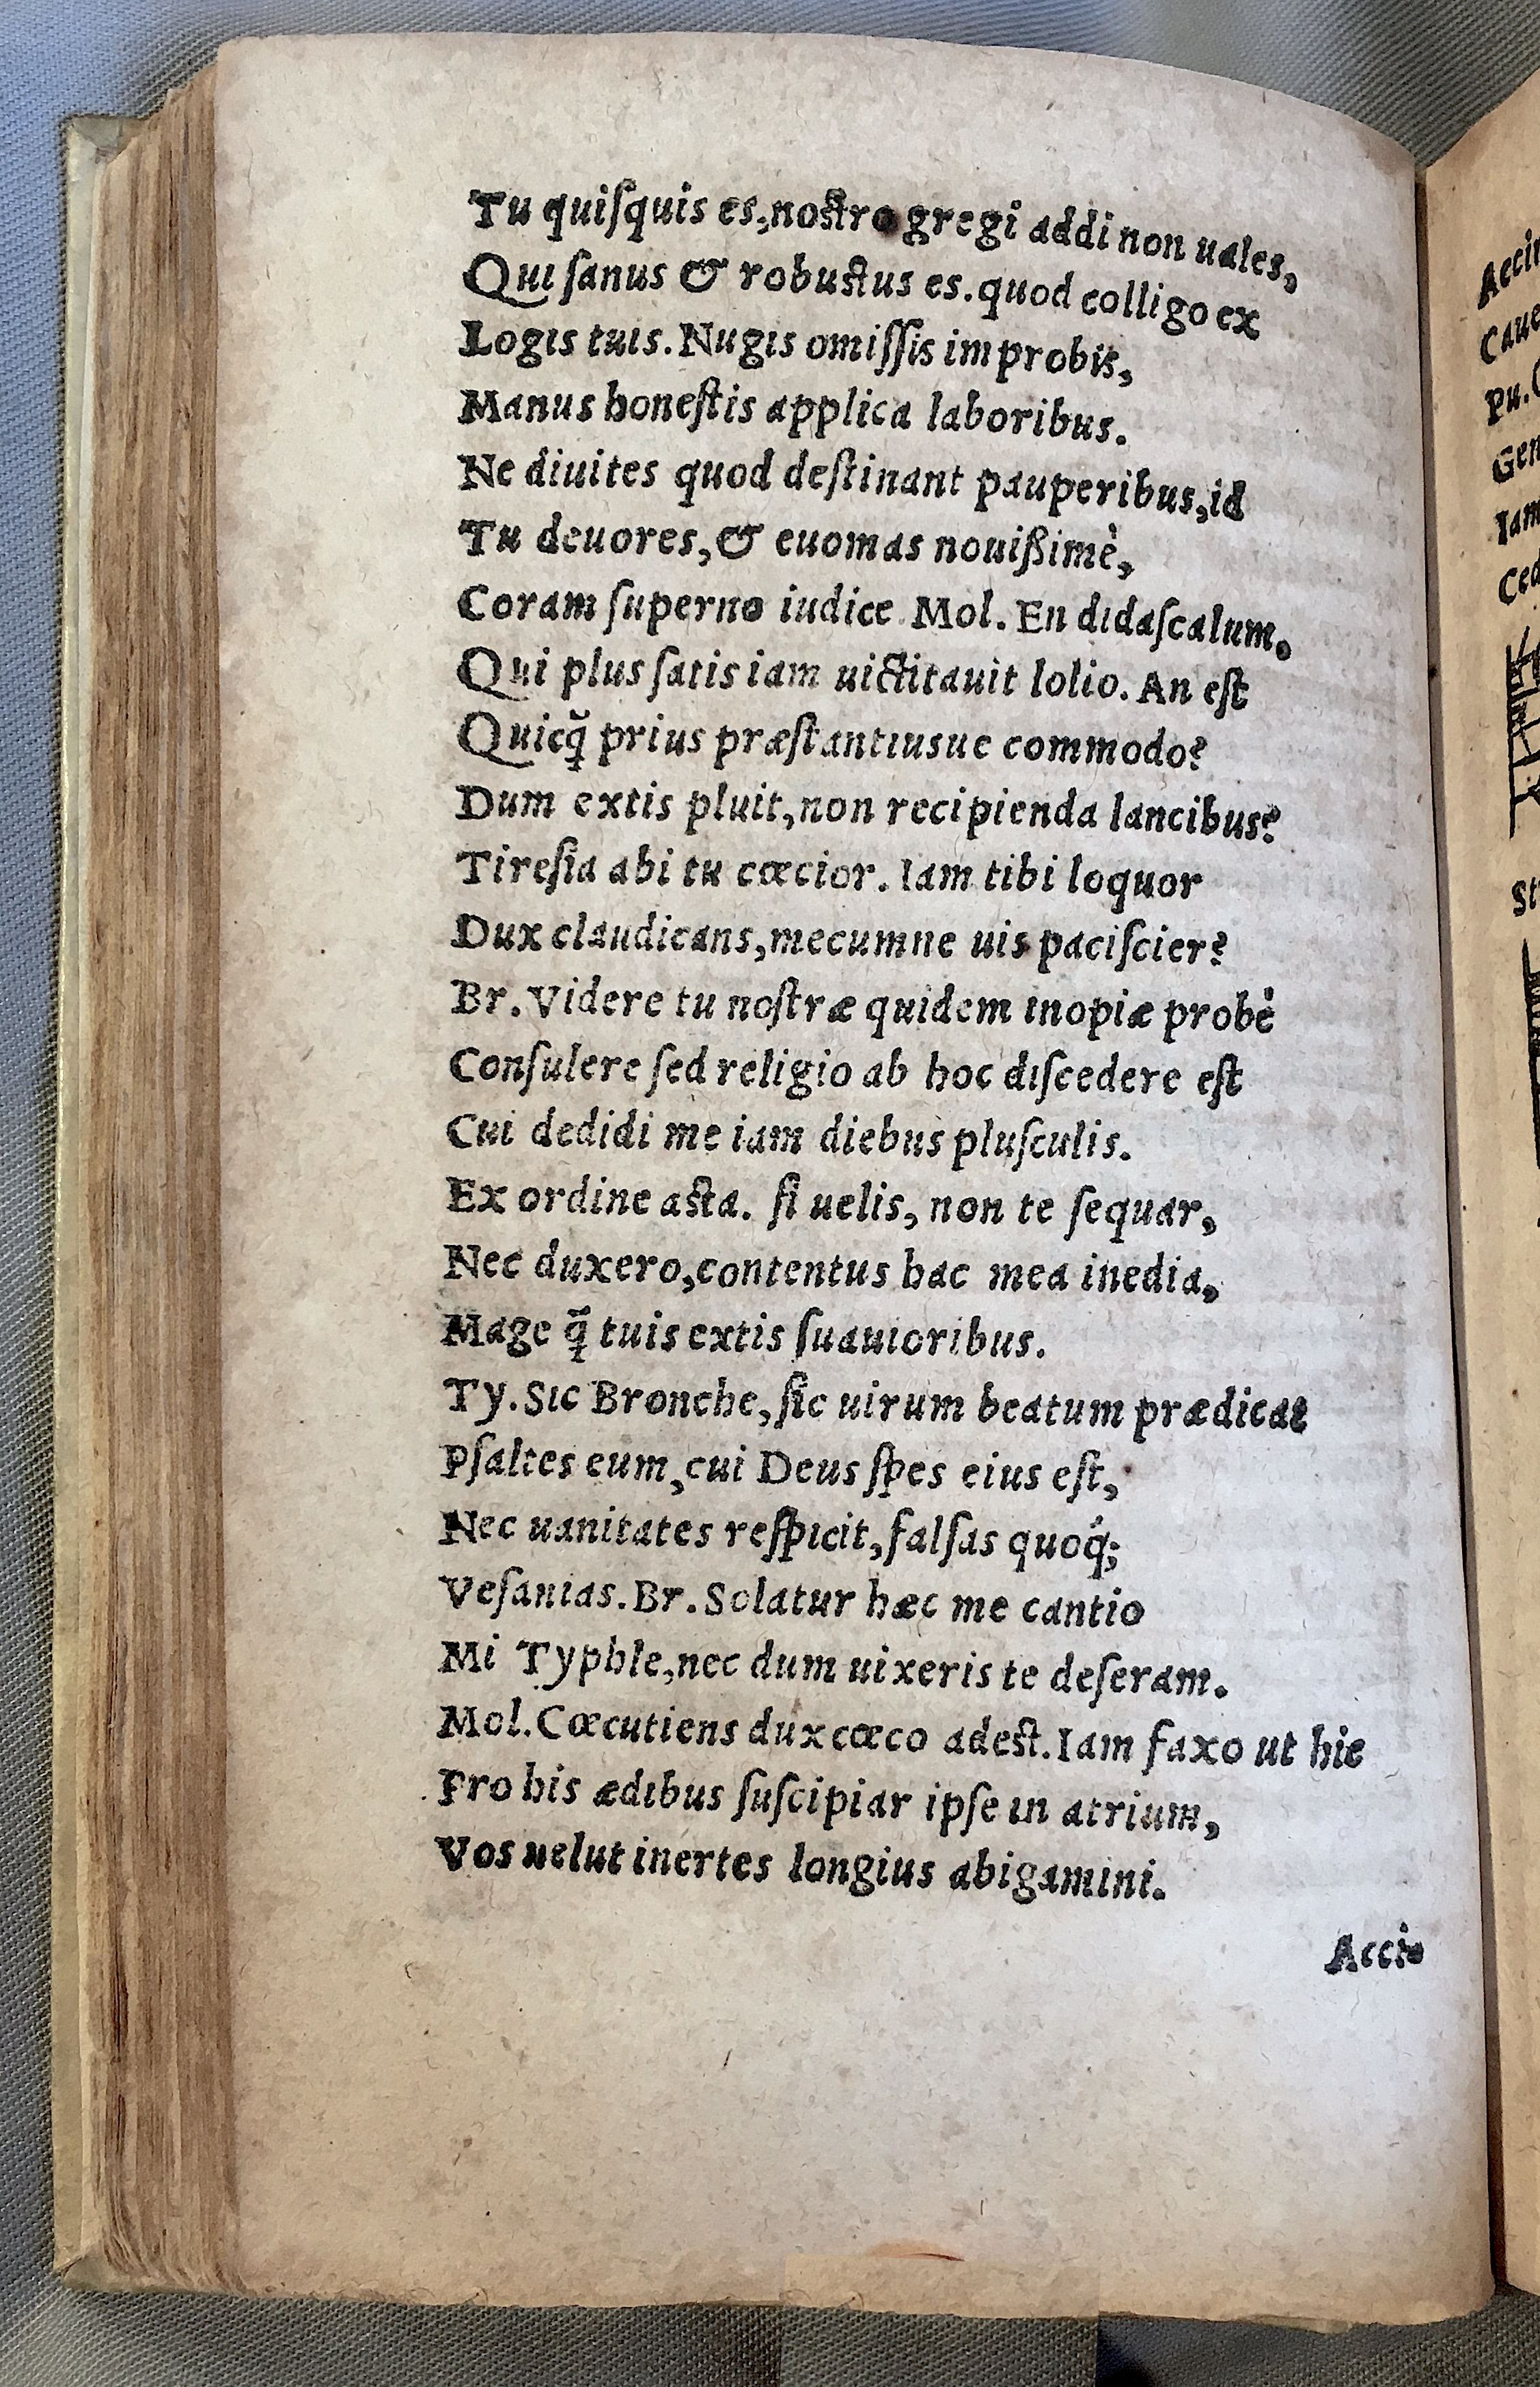 Tu quiſquis es, noſtro gregi addi non uales,
Qui ſanus & robuſtus es. quod colligo ex
Logis tuis. Nugis omiſſis improbis,
Manus honeſtis applica laboribus.
Ne diuites quod deſtinant pauperibus, id
Tu deuores, & euomas nouißimè,
Coram ſuperno iudice. Mol. En didaſcalum.
Qui plus ſatis iam uictitauit lolio. An eſt
Quicq̃ prius præſtantiusue commodo?
Dum extis pluit, non recipienda lancibus?
Tireſia abi tu cœcior. Iam tibi loquor
Dux claudicans, mecumne uis paciſcier?
Br. Videre tu noſtræ quidem inopiæ probè
Conſulere ſed religio ab hoc diſcedere eſt
Cui dedidi me iam diebus pluſculis.
Ex ordine aſta. ſi uelis, non te ſequar,
Nec duxero, contentus hac mea inedia,
Mage q̃ tuis extis ſuauioribus.
Ty. Sic Bronche, ſic uirum beatum prædicat
Pſaltes eum, cui Deus ſpes eius eſt,
Nec uanitates reſpicit, falſas quoq́;
Veſanias. Br. Solatur hæc me cantio
Mi Typhle, nec dum uixeris te deſeram.
Mol. Cœcutiens dux cœco adeſt. Iam faxo ut hic
Pro his ædibus ſuſcipiar ipſe in atrium,
Vos uelut inertes longius abigamini.
Accio
Caue
pu.
Iam